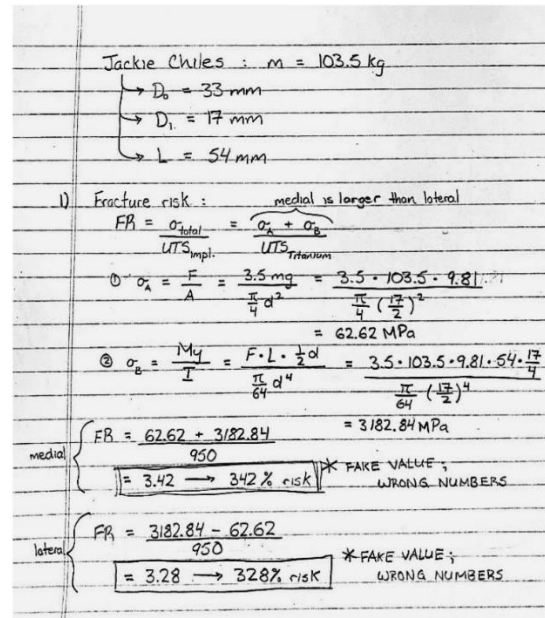 Jackie Chiles : m = 103.5 kg
→ D₀ = 33 mm
→ D₁ = 17 mm
→ L = 54 mm
1) Fracture risk : medial is larger than lateral
FR = σ_total / UTS_Impl. = (σ_A + σ_B) / UTS_Titanium
① σ_A = F / A = 3.5 mg / (π/4 d²) = 3.5 · 103.5 · 9.81 / (π/4 (17/2)²)
= 62.62 MPa
② σ_B = My / I = F · L · ½d / (π/64 d⁴) = 3.5 · 103.5 · 9.81 · 54 · 17/4 / (π/64 (17/2)⁴)
= 3182.84 MPa
medial { FR = (62.62 + 3182.84) / 950
= 3.42 → 342 % risk * FAKE VALUE ; WRONG NUMBERS
lateral { FR = (3182.84 – 62.62) / 950
= 3.28 → 328% risk * FAKE VALUE ; WRONG NUMBERS